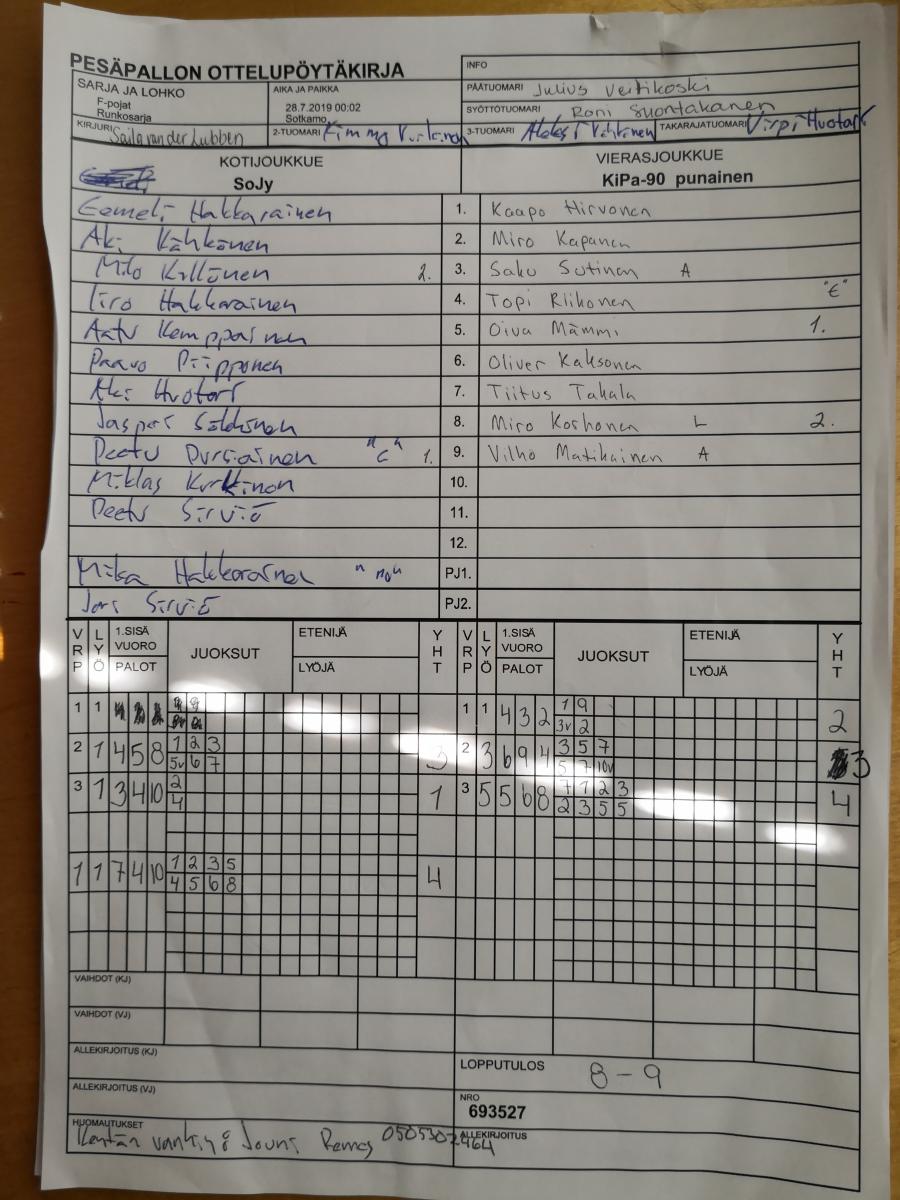 PESÄPALLON OTTELUPÖYTÄKIRJA
INFO
SARJA JA LOHKO
F-pojat
Runkosarja
AIKA JA PAIKKA
28.7.2019 00:02
Sotkamo
PÄÄTUOMARI Julius
SYÖTTÖTUOMARI Roni Suontakanen
KIRJURI Saila van der Lubben
2-TUOMARI Kimmo
3-TUOMARI
TAKARAJATUOMARI Virpi Huotari
KOTIJOUKKUE
SoJy
VIERASJOUKKUE
KiPa-90 punainen
Eemeli Hakkarainen 1. Kaapo Hirvonen
Aki Kähkönen 2. Miro Kapanen
Milo Källönen 2. 3. Saku Sutinen A
Iiro Hakkarainen 4. Topi Riikonen "C"
Aatu Kemppainen 5. Oiva Mämmi 1.
Paavo Piipponen 6. Oliver Kaksonen
Aki Huotari 7. Tiitus Takala
Jasperi 8. Miro Korhonen L 2.
Peetu Pursiainen "C" 1. 9. Vilho Matikainen A
Miklas Kurkinen 10.
Peetu Sirviö 11.
12.
Mika Hakkarainen PJ1.
Jari Sirviö PJ2.
VRP LYÖ 1.SISÄ VUORO PALOT JUOKSUT ETENIJÄ LYÖJÄ YHT VRP LYÖ 1.SISÄ VUORO PALOT JUOKSUT ETENIJÄ LYÖJÄ YHT
1 1 1 1 4 3 2 1 9 2
3v 2
2 1 4 5 8 1 2 3 3 2 3 6 9 4 3 5 7 3
5v 6 7 5 7 10v
3 1 3 4 10 2 1 3 5 5 6 8 7 1 2 3 4
4 2 3 5 5
1 1 7 4 10 1 2 3 5 4
4 5 6 8
VAIHDOT (KJ)
VAIHDOT (VJ)
ALLEKIRJOITUS (KJ)
LOPPUTULOS 8 - 9
ALLEKIRJOITUS (VJ)
NRO
693527
HUOMAUTUKSET
Kentän Jouni Remes 0505302464
ALLEKIRJOITUS